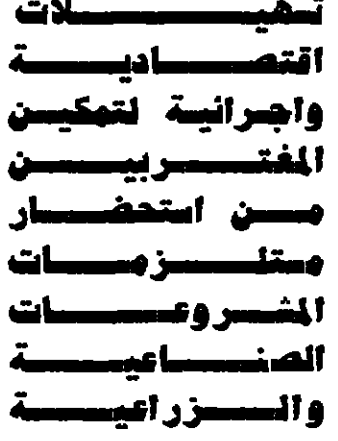 تسهيلات
اقتصادية
واجرائية لتمكين
المغتربين
من استحضار
مستلزمات
المشروعات
الصناعية
والزراعية